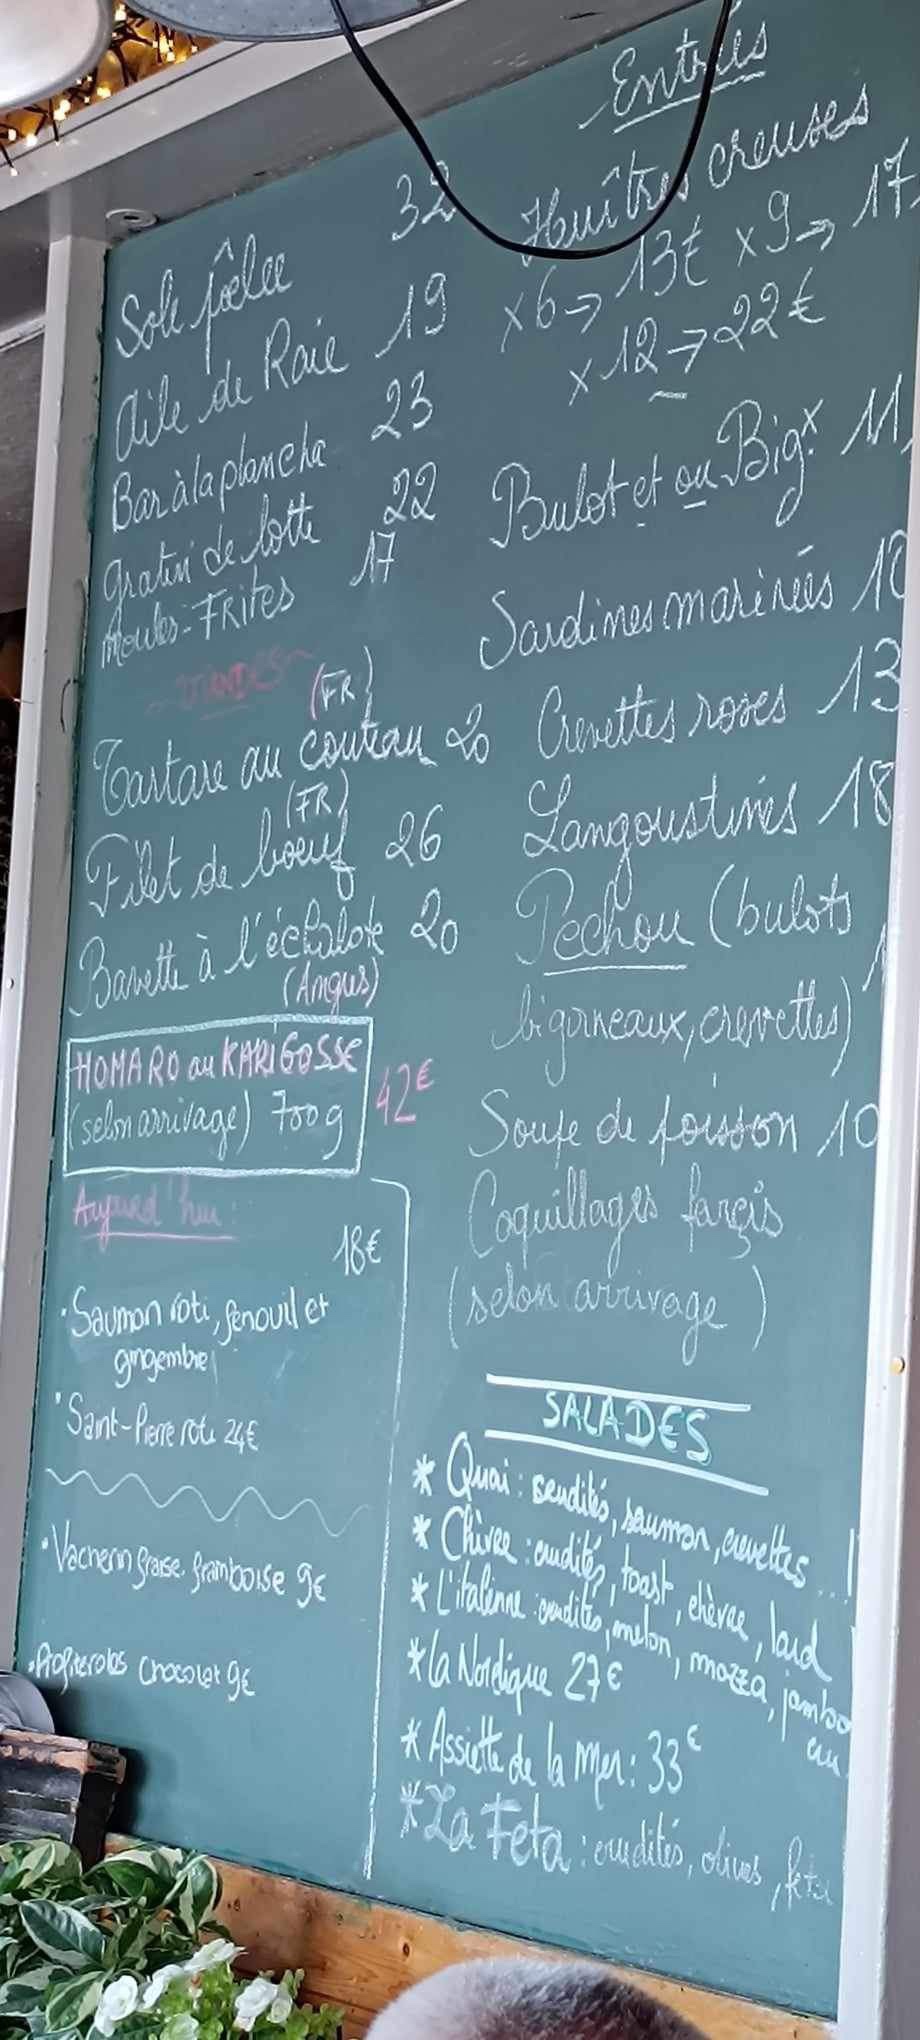 Sole pôelee 32
Aile de Raie 19
Bar à la plancha 23
gratin de lotte 22
moules-FRites 17
VIANDES
(FR)
Tartare au couteau 20
(FR)
Filet de boeuf 26
Bavette à l'échalote 20
(Angus)
HOMARD au KARIGOSSE
(selon arrivage) 700g 42€
Aujourd'hui:
18€
• Saumon roti, fenouil et
gingembre
• Saint-Pierre roti 24€
• Vacherin fraise, framboise 9€
• Profiteroles Chocolat 9€
Entrées
Huîtres creuses
x6 → 13€ x9 → 17
x12 → 22€
Bulot et ou Bigx 11
Sardines marinées 10
Crevettes roses 13
Langoustines 18
Pechou (bulots
bigorneaux, crevettes)
Soupe de poisson 10
Coquillages farçis
(selon arrivage)
SALADES
* Quai: crudités, saumon, crevettes...
* Chèvre: crudités, toast, chèvre, lard
* L'italienne: crudités, melon, mozza, jambo
cru
* La Nordique 27€
* Assiette de la mer: 33€
* La Feta: crudités, olives, feta